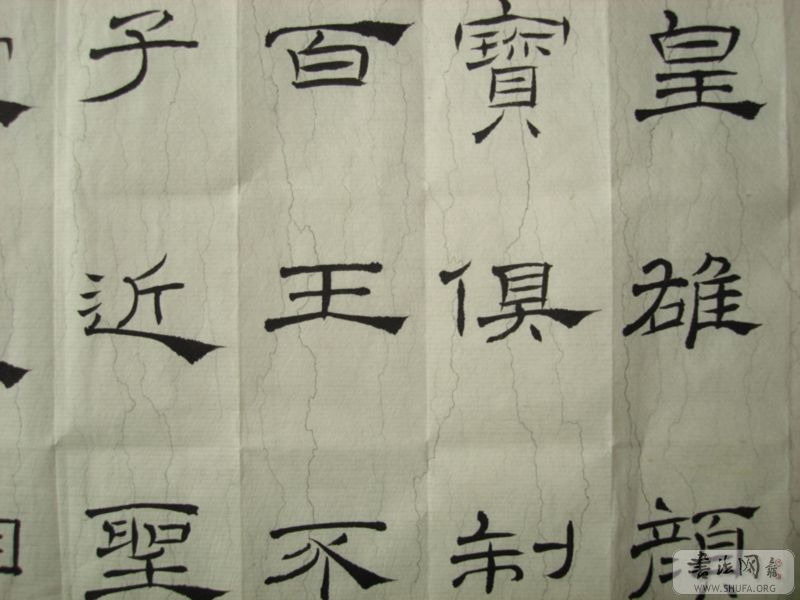 皇雄顏
寶俱制
百王不
子近聖
书法网
WWW.SHUFA.ORG